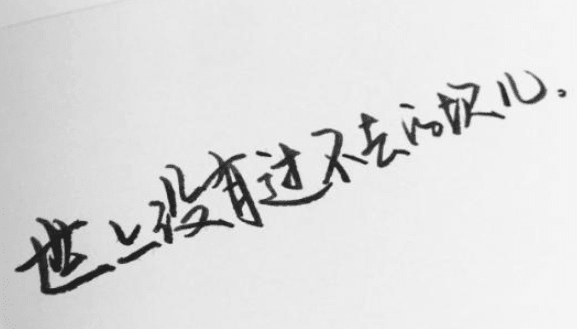 世上没有过不去的坎儿。